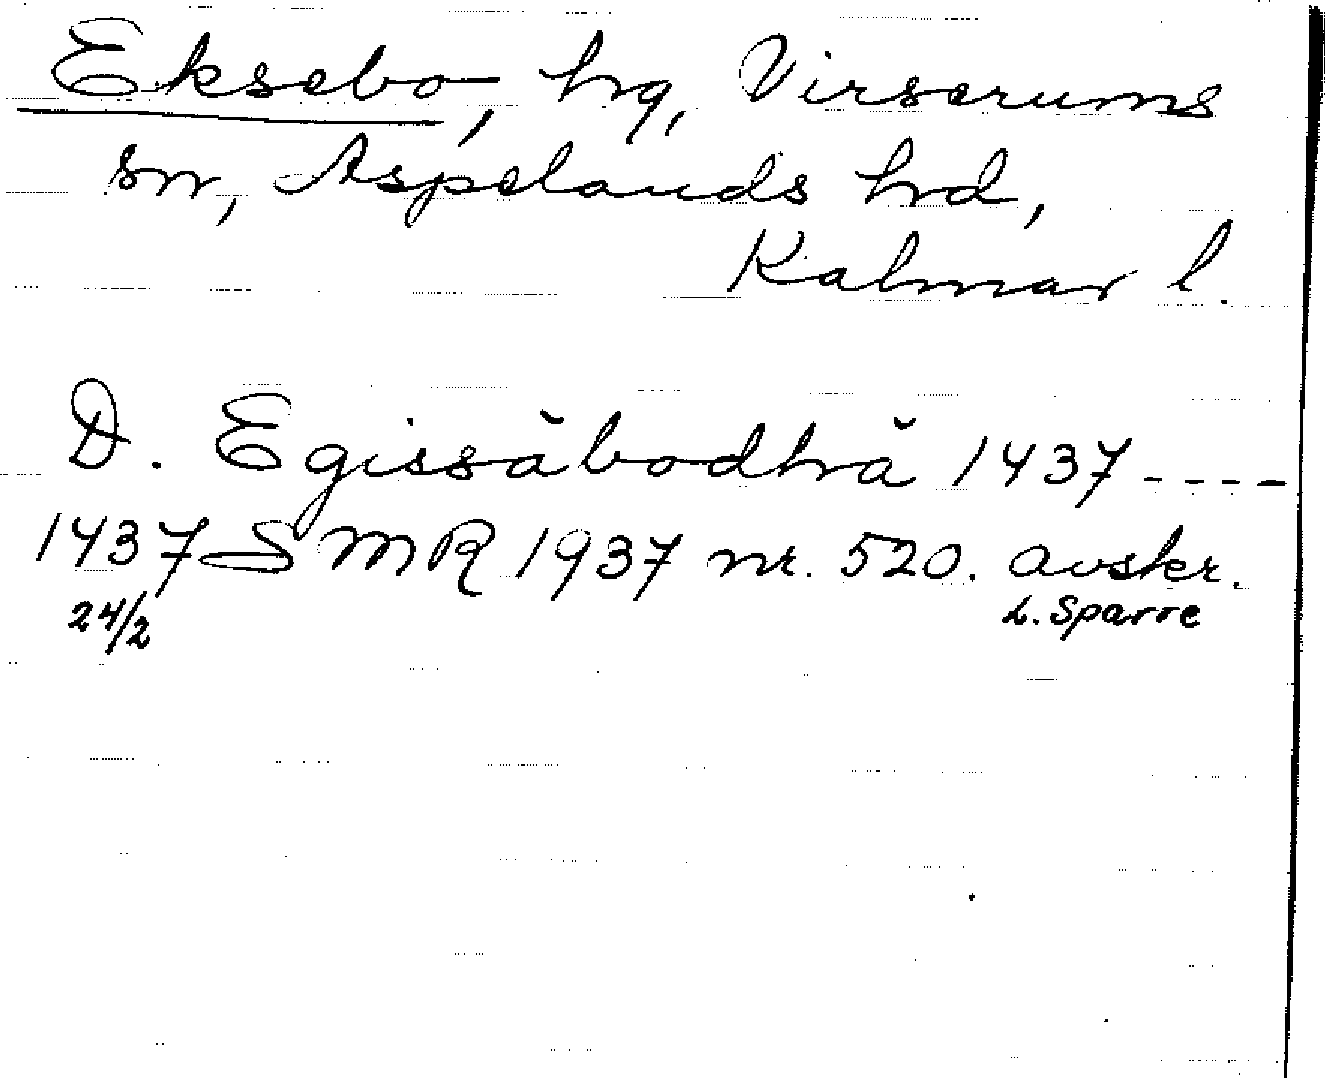 Eksebo, hg, Virserums
sn, Aspelands hd,
Kalmar l.
D. Egissäbodhä 1437 ----
1437 SMR 1937 nr. 520. avskr.
24/2 L. Sparre